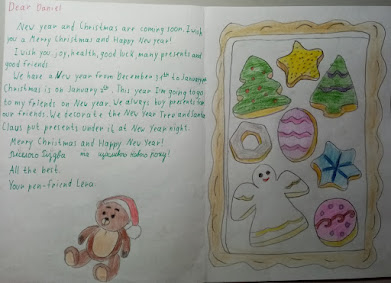 Dear Daniel
New year and Christmas are coming soon. I wish
you a Merry Christmas and Happy New year!
I wish you, joy, health, good luck, many presents and
good friends.
We have a New year from December 31th to January
Christmas is on January. This year I'm going to go
to my friends on New year. We always buy presents for
our friends. We decorate the New Year Tree and Santa
Claus put presents under it at New Year night.
Merry Christmas and Happy New Year!
та щасливого Нового Року!
All the best.
Your pen-friend Lera.